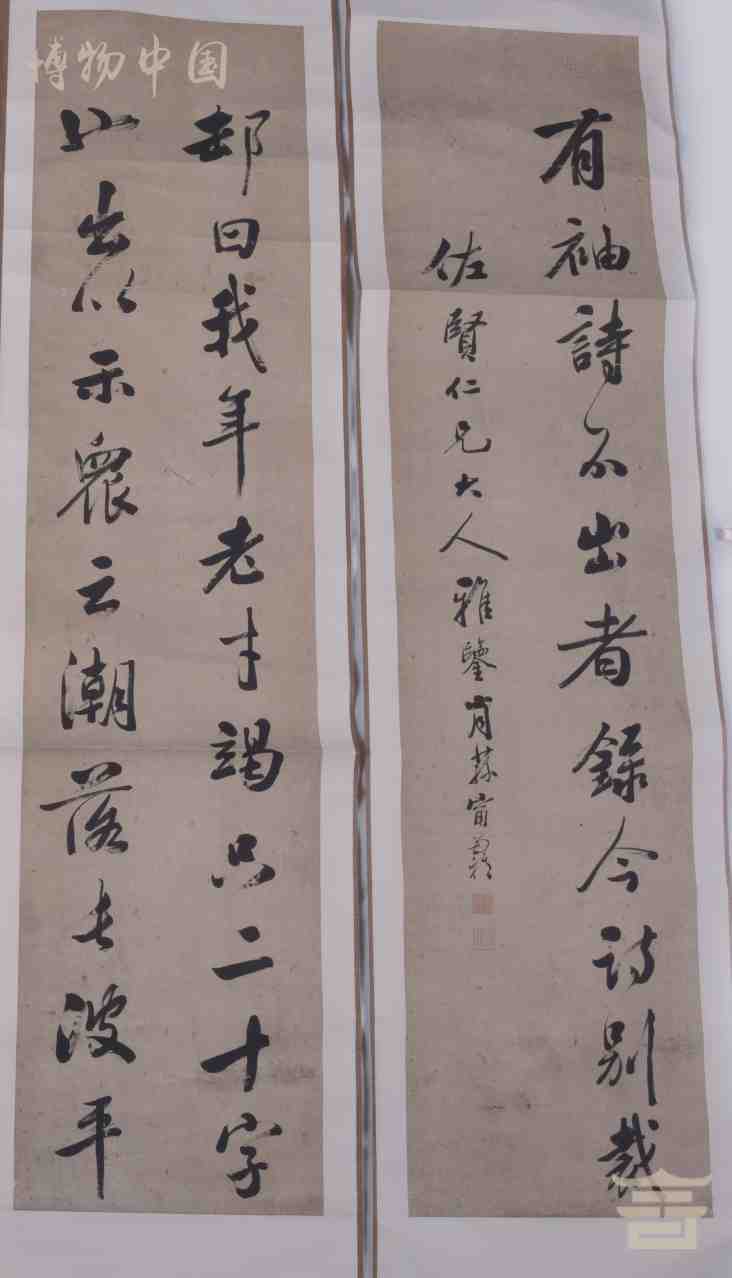 博物中国
却曰我年老才竭只二十字
出以示眾云潮落去波平
有袖詩不出者錄今詩別裁
佐賢仁兄大人雅鑒